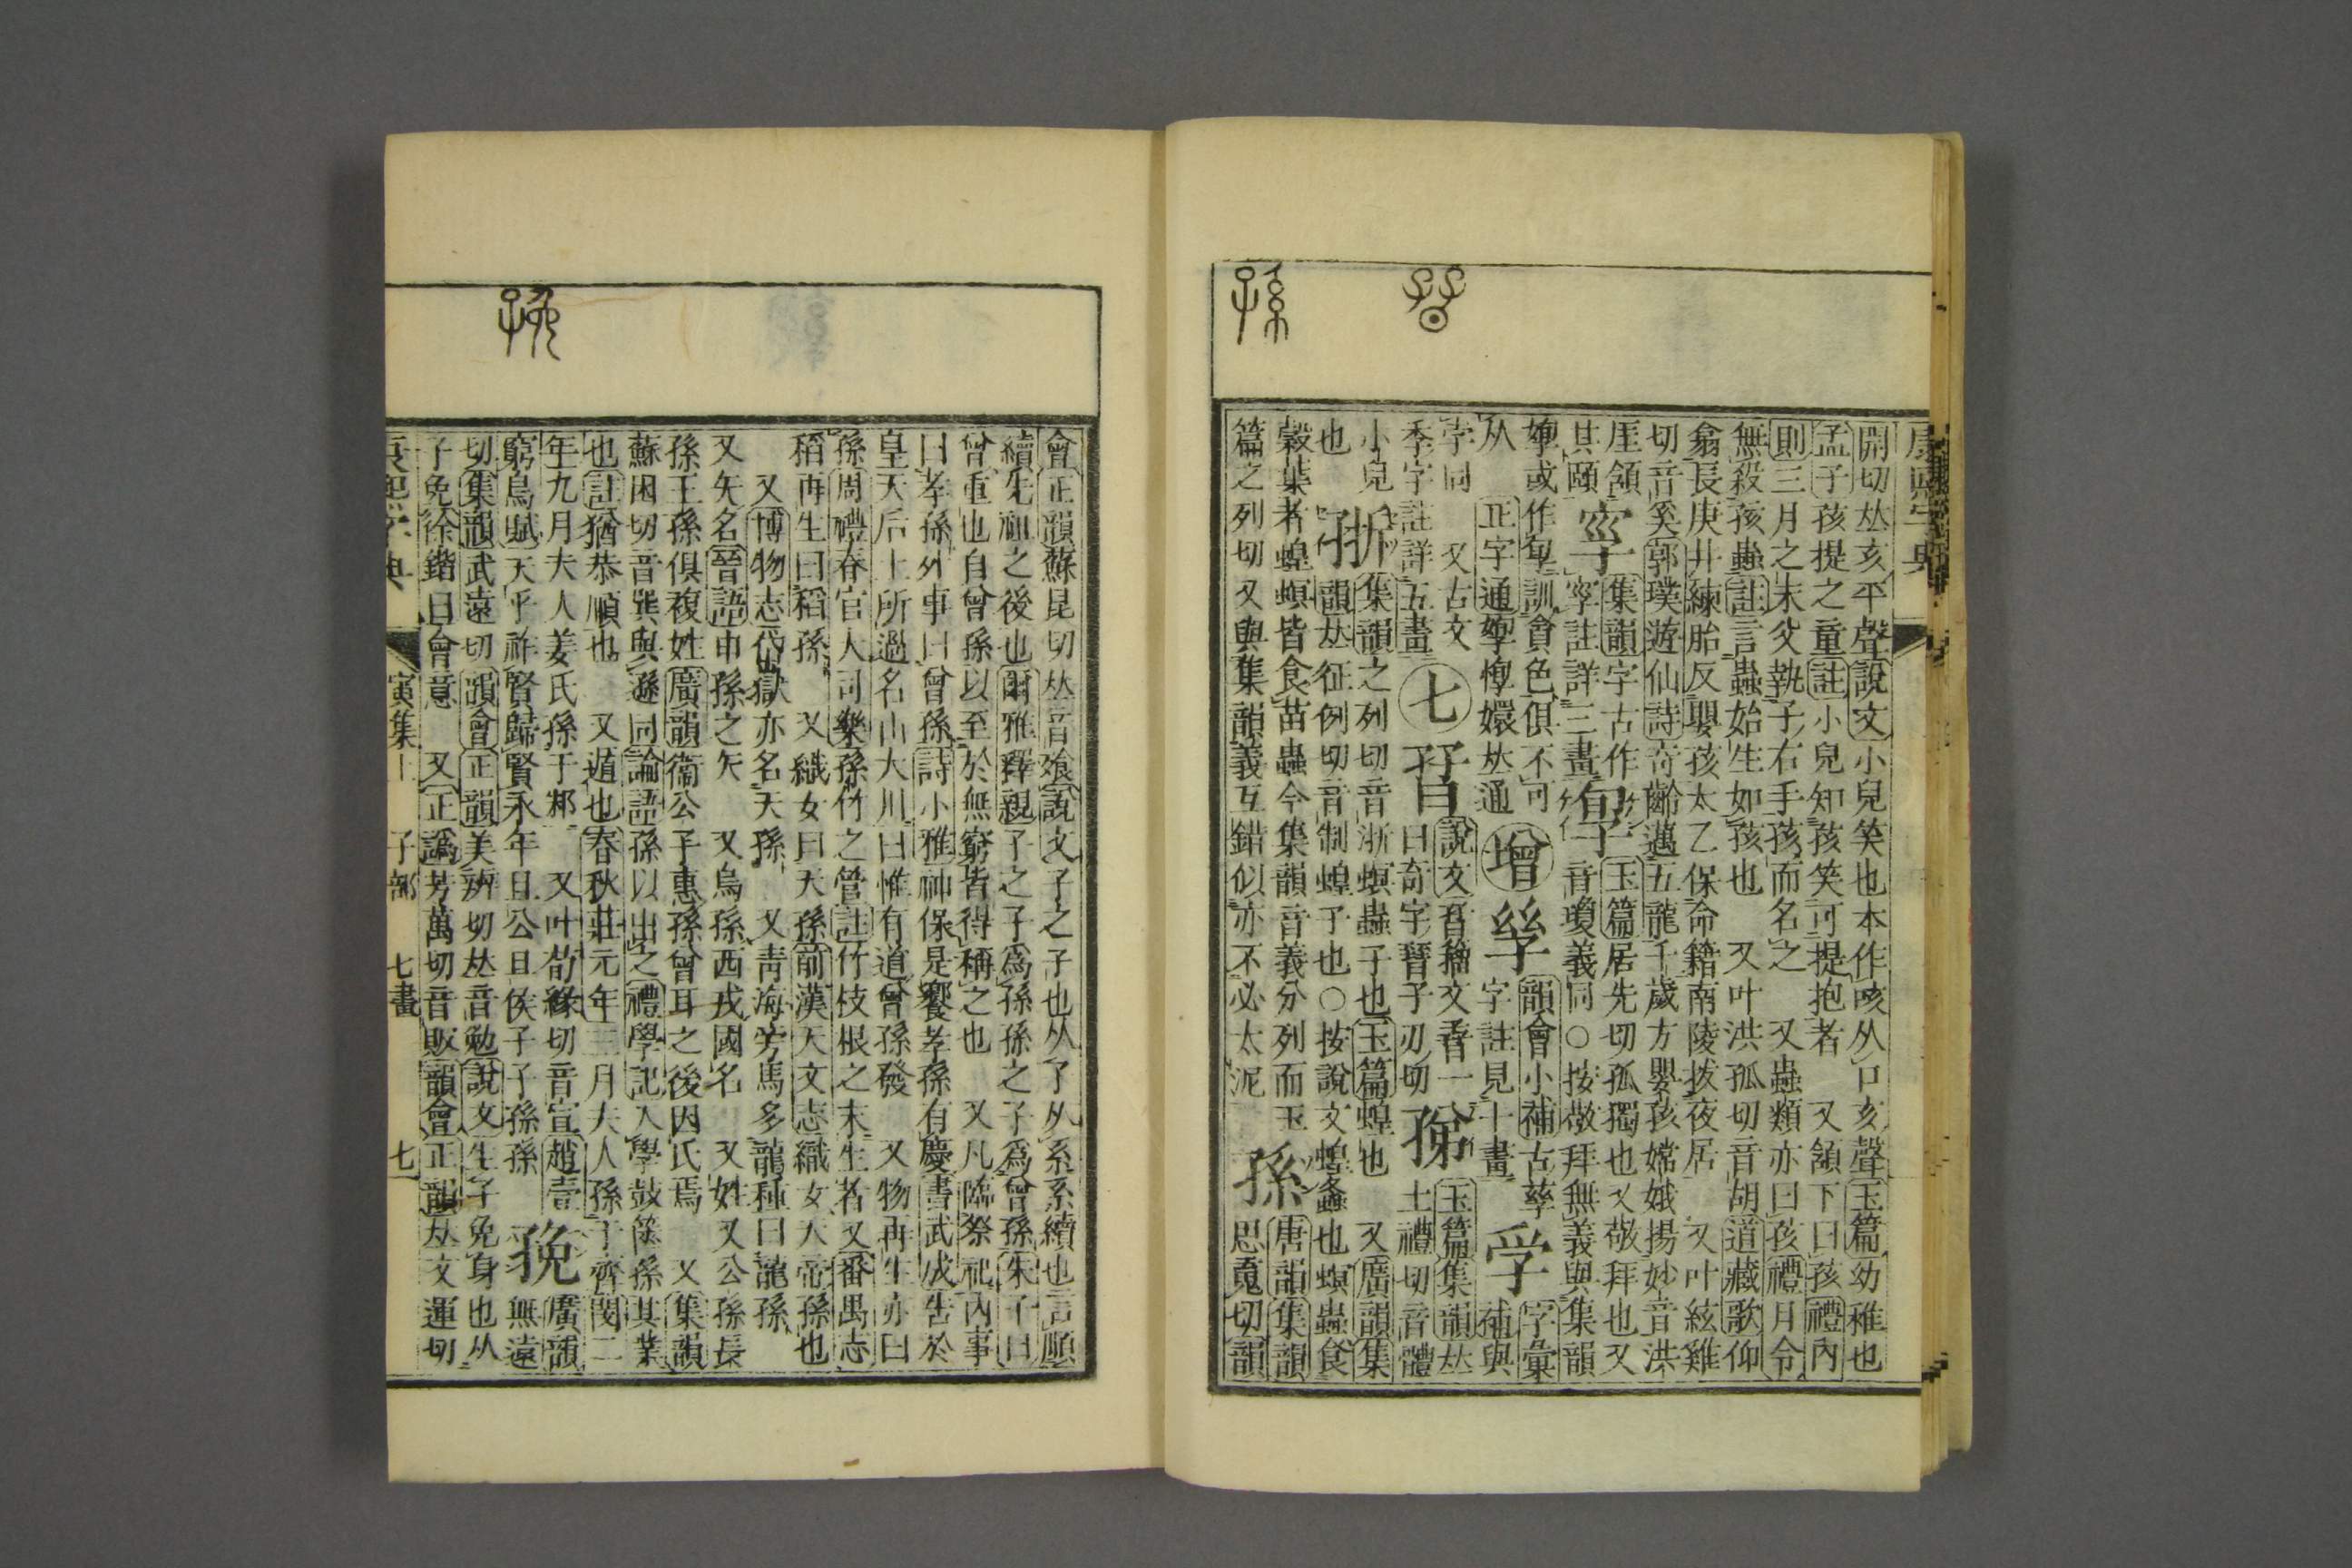 康熙字典
開切𠀤亥平聲說文小兒笑也本作咳从口亥聲玉篇幼稚也
孟子孩提之童註小兒知孩笑可提抱者 又頷下曰孩禮內
則三月之末父執子右手孩而名之 又蟲類亦曰孩禮月令
無殺孩蟲註言蟲始生如孩也 又叶洪孤切音胡道藏歌仰
翕長庚井練胎反嬰孩太乙保命籍南陵拔夜居 又叶絃雞
切音奚郭璞遊仙詩奇齡邁五龍千歲方嬰孩嫦娥揚妙音洪
厓頷
其頤
集韻字古作
㝒註詳三畫
玉篇居先切孤獨也又敬拜也又
音瓊義同○按敬拜無義與集韻
嬛或作㝁訓貪色俱不可
从 正字通㝁惸嬛𠀤通
增
韻會小補古孳
字註見十畫
字彙
補與
孛同 又古文
季字註詳五畫
七
說文㬜籀文㬜一
曰奇字𣊬子刃切
玉篇集韻𠀤
土禮切音體
小兒
也
集韻之列切音浙螟蟲子也玉篇蝗也 又廣韻集
韻𠀤征例切音制蝗子也○按說文蝗螽也螟蟲食
穀葉者蝗螟皆食苗蟲今集韻音義分列而玉
篇之列切又與集韻義互錯似亦不必太泥
孫
唐韻集韻
思䰟切韻
會正韻蘇昆切𠀤音飧說文子之子也从子从系系續也言順
續先祖之後也爾雅釋親子之子爲孫孫之子爲曾孫朱子曰
曾重也自曾孫以至於無窮皆得稱之也 又凡臨祭祀內事
曰孝孫外事曰曾孫詩小雅神保是饗孝孫有慶書武成告于
皇天后土所過名山大川曰惟有道曾孫發 又物再生亦曰
孫周禮春官大司樂孫竹之管註竹枝根之末生者又番禺志
稻再生曰稻孫 又織女曰天孫前漢天文志織女天帝孫也
又博物志岱嶽亦名天孫 又靑海旁馬多龍種曰龍孫
又矢名晉語申孫之矢 又烏孫西戎國名 又姓又公孫長
孫王孫俱複姓廣韻衞公子惠孫曾耳之後因氏焉 又集韻
蘇困切音巽與遜同論語孫以出之禮學記入學鼓篋孫其業
也註猶恭順也 又遁也春秋莊元年三月夫人孫于齊閔二
年九月夫人姜氏孫于邾 又叶荀緣切音宣趙壹
窮鳥賦天乎祚賢歸賢永年且公且侯子子孫孫
㝃
廣韻
無遠
切集韻武遠切韻會正韻美辨切𠀤音勉說文生子免身也从
子免徐鍇曰會意 又正譌芳萬切音販韻會正韻𠀤文運切
康熙字典 寅集上 子部 七畫 七